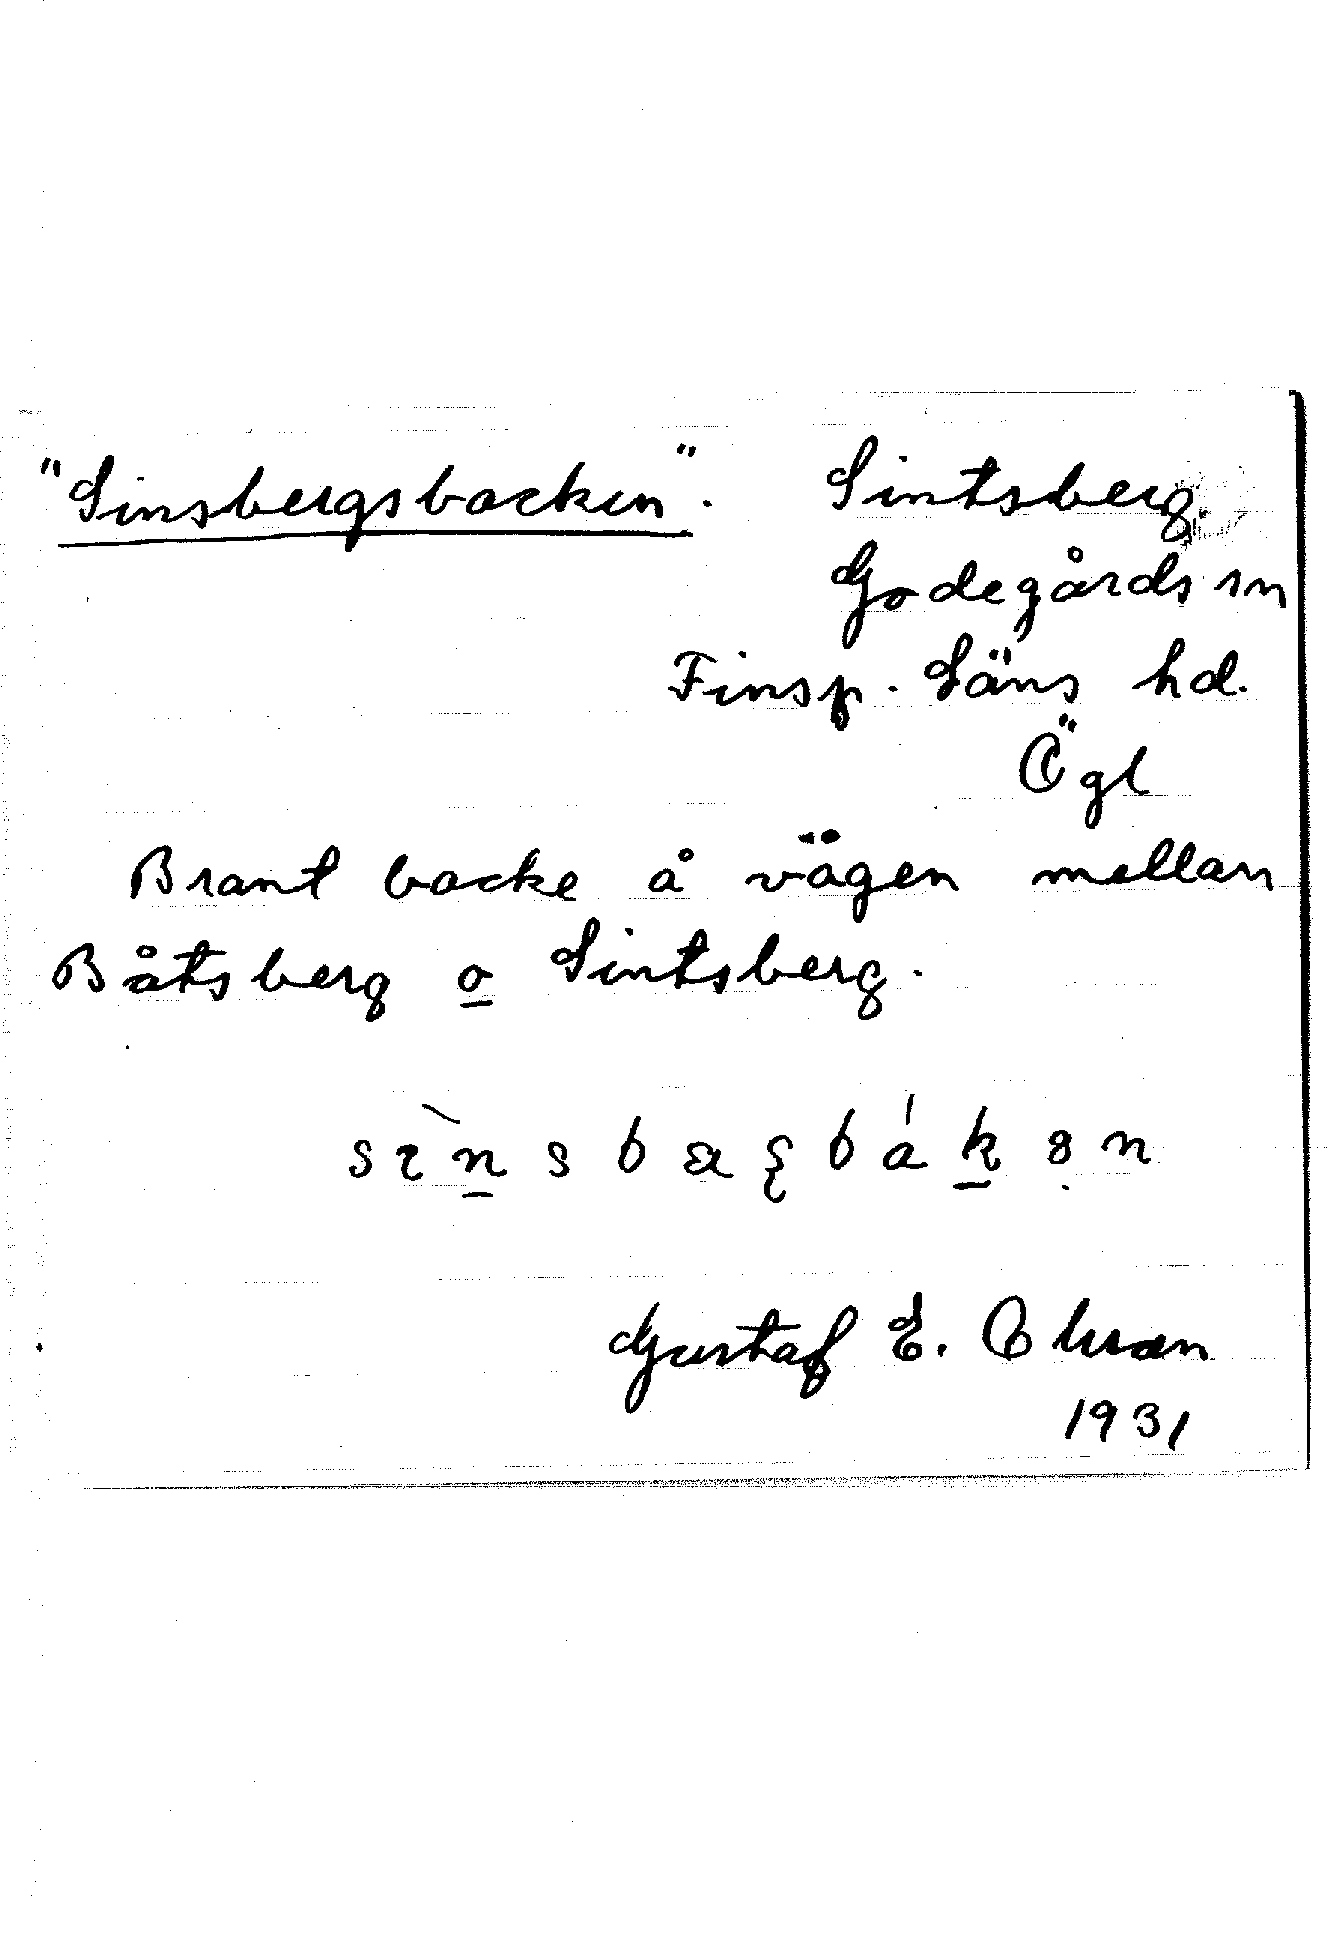 "Sinsbergsbacken". Sintsberg.
Godegårds sn
Finsp. Läns hd.
Ögl
Brant backe å vägen mellan
Båtsberg o Sintsberg.
Gustaf E.
1931